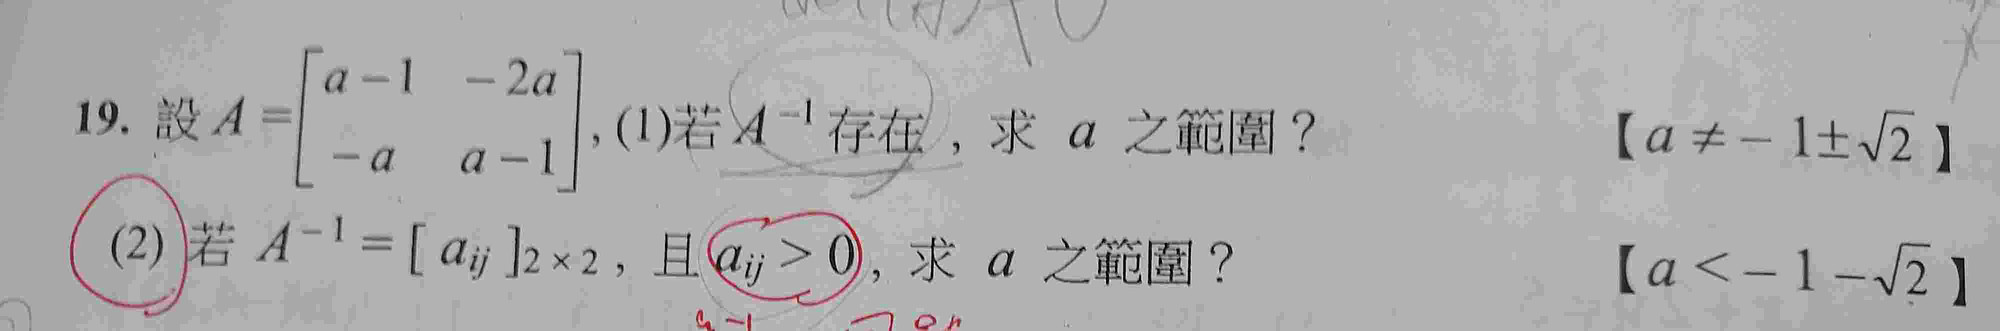 19. 設 A = [a-1 -2a
-a a-1], (1)若 A⁻¹ 存在，求 a 之範圍？ 【a ≠ -1±√2】
(2) 若 A⁻¹ = [a_ij]₂ₓ₂，且 a_ij > 0，求 a 之範圍？ 【a < -1-√2】